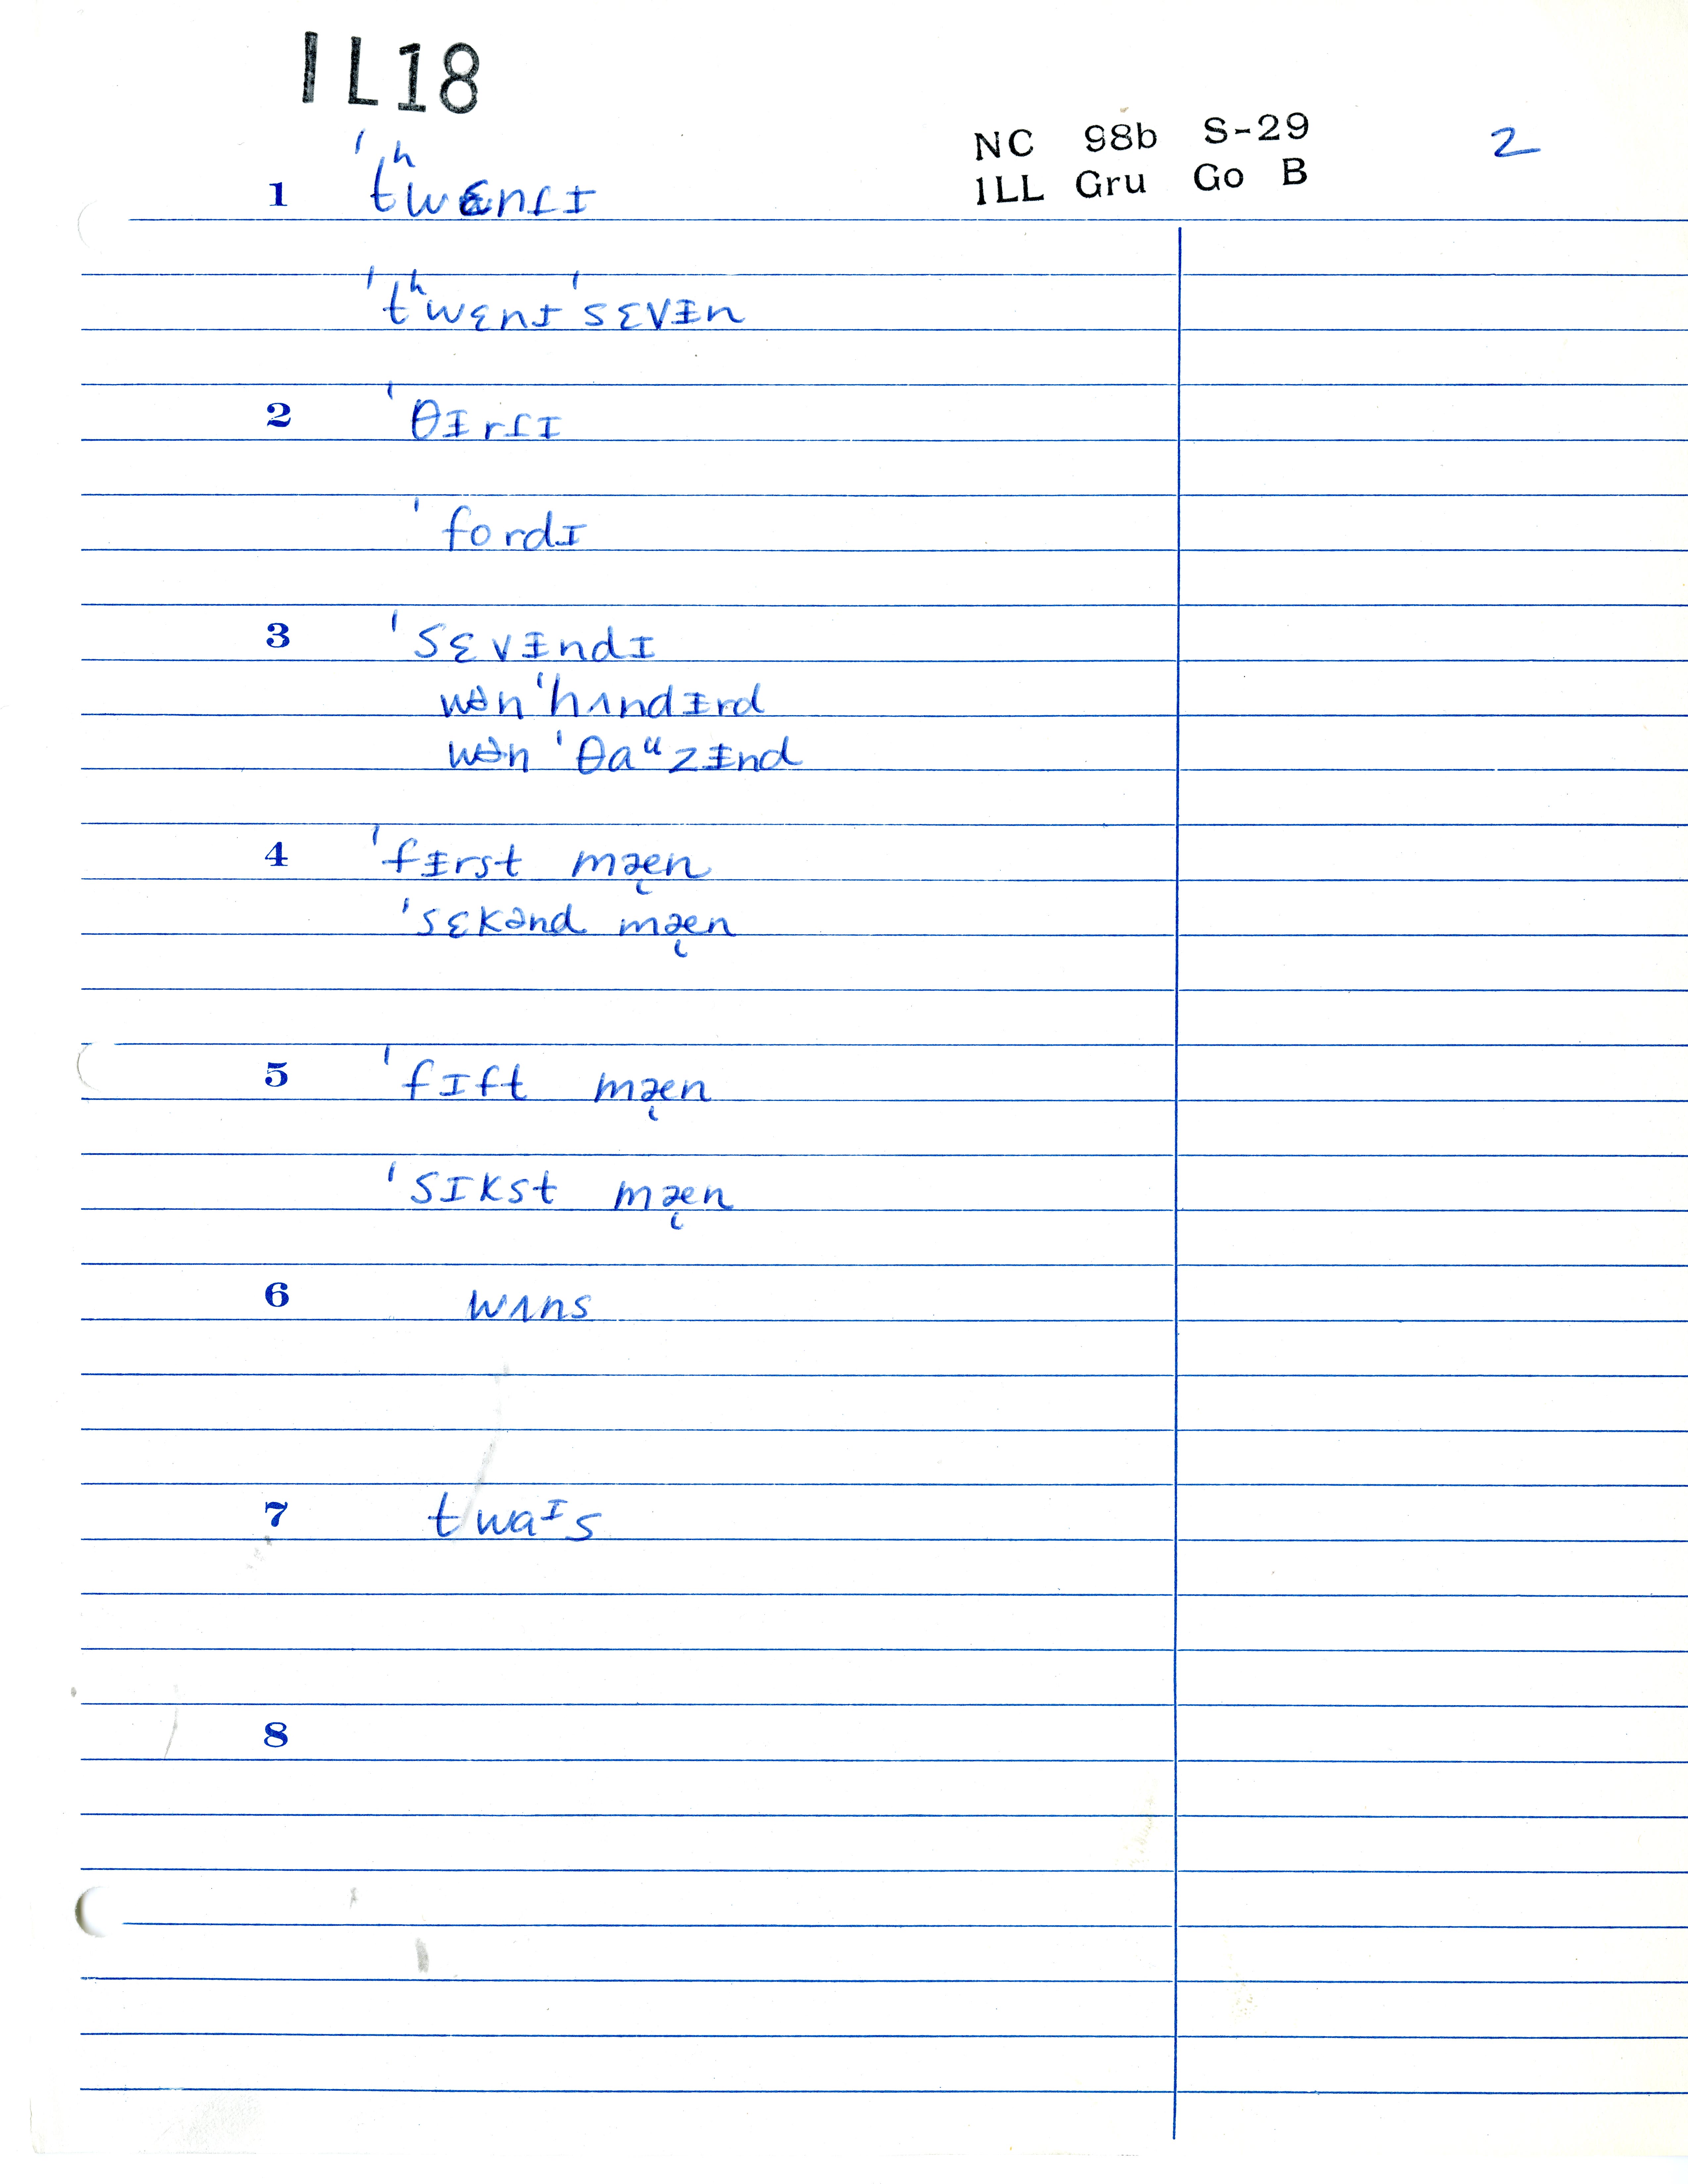 IL18
NC 98b S-29 2
ILL Gru Go B
1 ˈtʰwɛnɾɪ
ˈtʰwɛnɪˈsɛvᵻn
2 ˈθɪrɾɪ
ˈfordɪ
3 ˈsɛvᵻndɪ
wɵnˈhʌndᵻrd
wɵn ˈθaᵘzᵻnd
4 ˈfᵻrst mæ̨n
ˈsɛkənd mæ̨n
5 ˈfɪft mæ̨n
ˈsɪkst mæ̨n
6 wʌns
7 twaᶦs
8